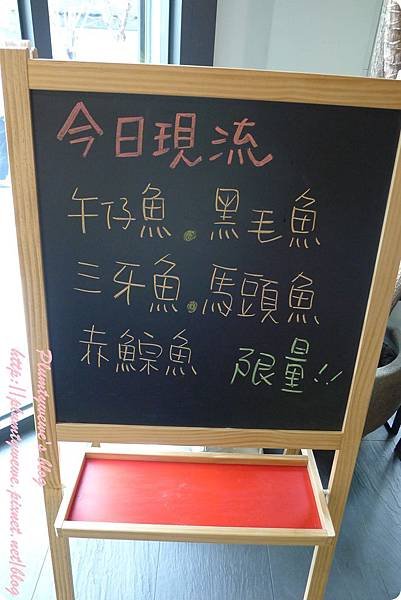 今日現流
午仔魚.黑毛魚
三牙魚.馬頭魚
赤鯮魚 限量!!
Plumtymeme's blog
http://plumtymeme.pixnet.net/blog